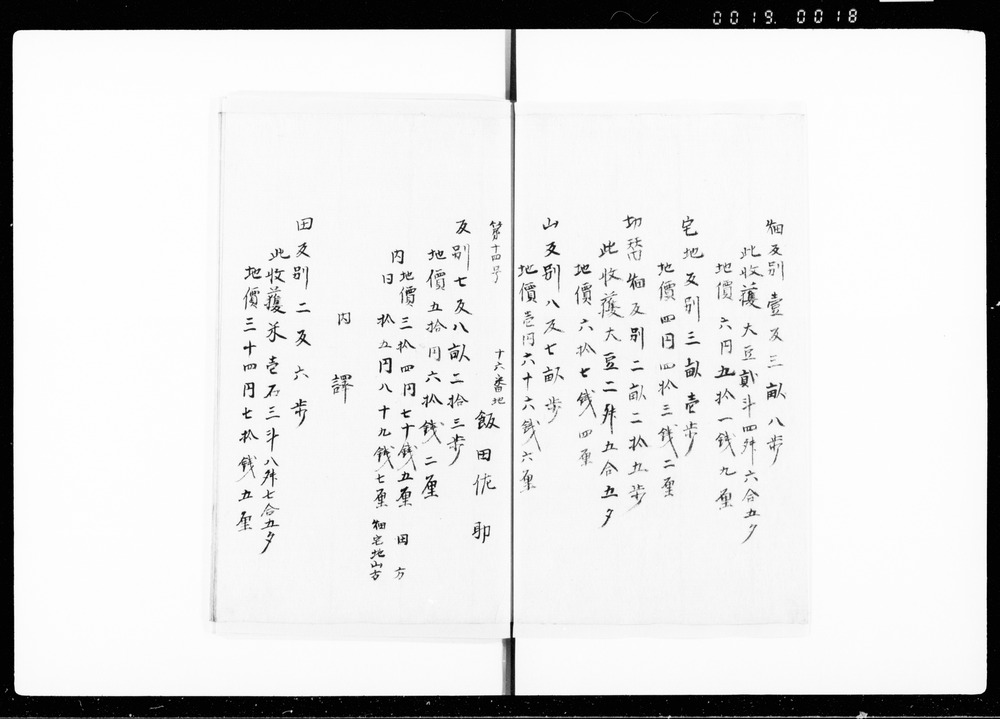 0019.0018
畑反別壹反三畝八歩
此收護大豆貳斗四舛六合五夕
地價六円五拾一銭九厘
宅地反別三畝壱歩
地價四円四拾三銭二厘
切替畑反別二畝二拾五歩
此收護大豆二舛五合五夕
地價六拾七銭四厘
山反別八反七畝歩
地價壱円六十六銭六厘
第十四号
十六番地
飯田佐助
反別七反八畝二拾三歩
地價五拾円六拾銭二厘
内地價三拾四円七十銭五厘 田方
内日拾五円八十九銭七厘 畑宅地山方
内譯
田反別二反六歩
此收護米壱石三斗八舛七合五夕
地價三十四円七拾銭五厘